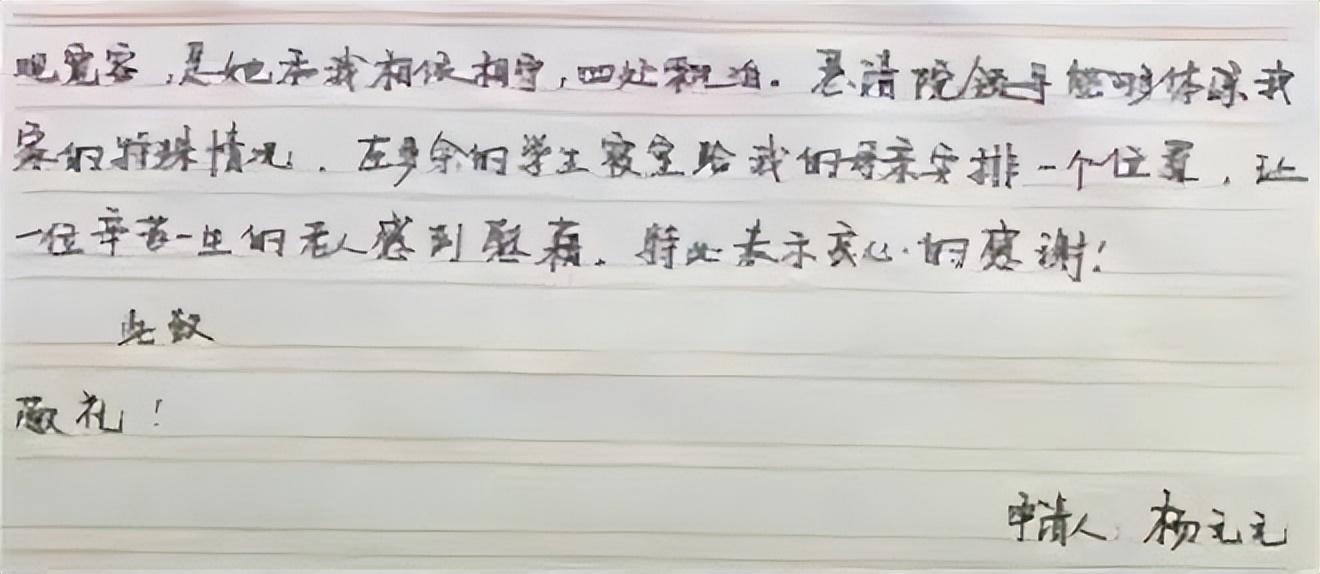 是她和我相依相守，四处漂泊。恳请院领导能够体谅我
家的特殊情况，在多余的学生寝室给我的母亲安排一个位置，让
一位辛苦一生的老人感到慰藉。特此表示衷心的感谢！
此致
敬礼！
申请人：杨元元